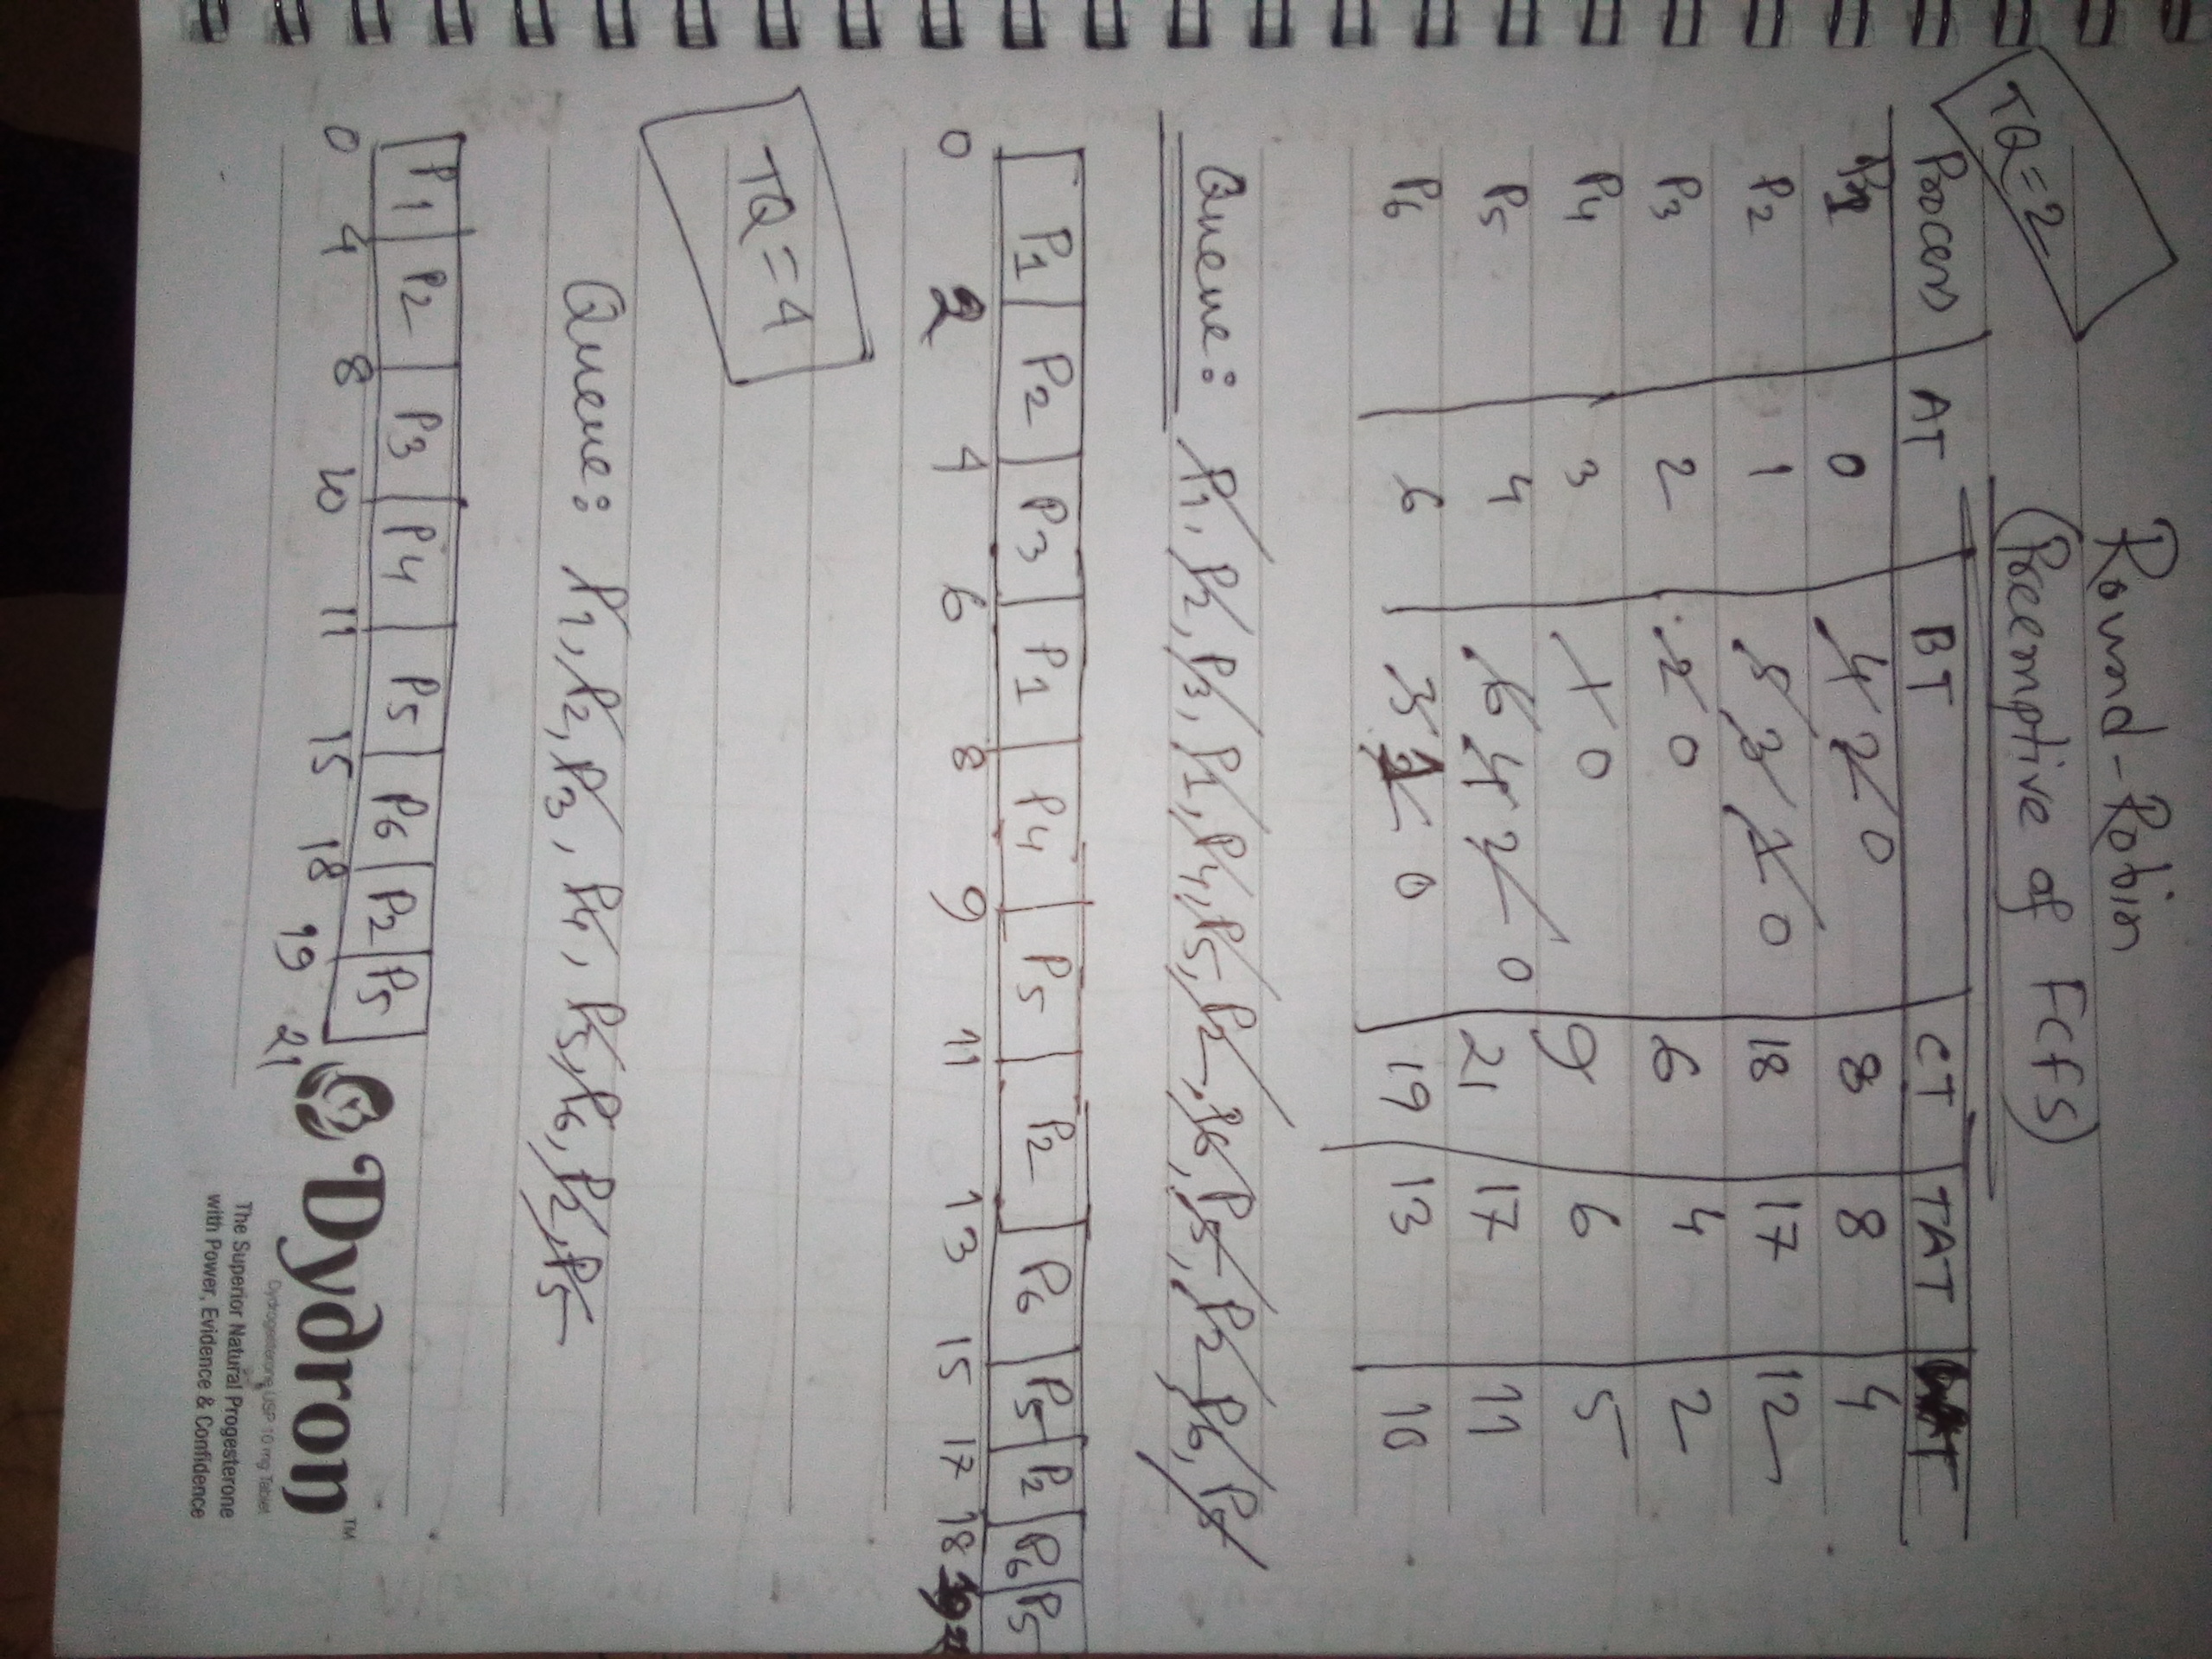 Round-Robin
TQ=2
(Preemptive of FCFS)
Process AT BT CT TAT WT
P1 0 4 2 0 8 8 4
P2 1 5 3 1 0 18 17 12
P3 2 2 0 6 4 2
P4 3 1 0 9 6 5
P5 4 6 4 2 0 21 17 11
P6 6 3 1 0 19 13 10
Queue: P1, P2, P3, P1, P4, P5, P2, P6, P5, P2, P6, P5
P1 P2 P3 P1 P4 P5 P2 P6 P5 P2 P6 P5
0 2 4 6 8 9 11 13 15 17 18 19 21
TQ=4
Queue: P1, P2, P3, P4, P5, P6, P2, P5
P1 P2 P3 P4 P5 P6 P2 P5
0 4 8 10 11 15 18 19 21
Dydron™
Dydrogesterone USP 10 mg Tablet
The Superior Natural Progesterone
with Power, Evidence & Confidence